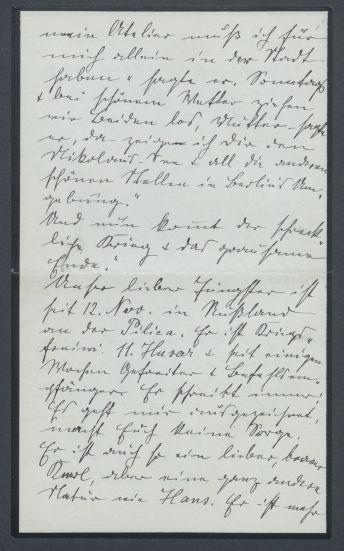 mein Atelier muß ich für
mich allein in der Stadt
haben" sagte er. Sonntags
& bei schönem Wetter ziehen
wir beiden los, Mutter – sagte
er, da zeige ich Dir den
Nikolaus See & all die anderen
schönen Stellen in Berlins Um-
gebung."
Und nun kommt der schreck-
liche Krieg & das grausame
Ende."
Unser lieber Jüngster ist
seit 12. Nov. in Rußland
an der Pilica. Er ist Kriegs-
freiw. 11. Husar & seit einigen
Wochen Gefreiter & Befehlsem-
pfänger. Er schreibt immer:
Es geht mir ausgezeichnet,
macht Euch keine Sorge.
Er ist auch so ein lieber, braver
Kerl, aber eine ganz andere
Natur wie Hans. Er ist mehr